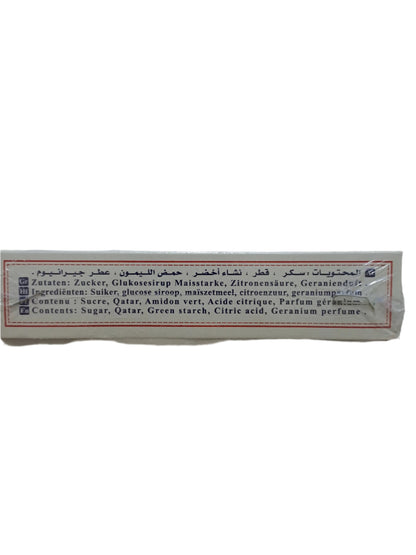 المحتويات : سكر ، قطر ، نشاء أخضر ، حمض الليمون ، عطر جيرانيوم .
Zutaten: Zucker, Glukosesirup Maisstarke, Zitronensäure, Geranienduft
Ingrediënten: Suiker, glucose siroop, maïszetmeel, citroenzuur, geraniumparfum
Contenu : Sucre, Qatar, Amidon vert, Acide citrique, Parfum géranium
En Contents: Sugar, Qatar, Green starch, Citric acid, Geranium perfume.